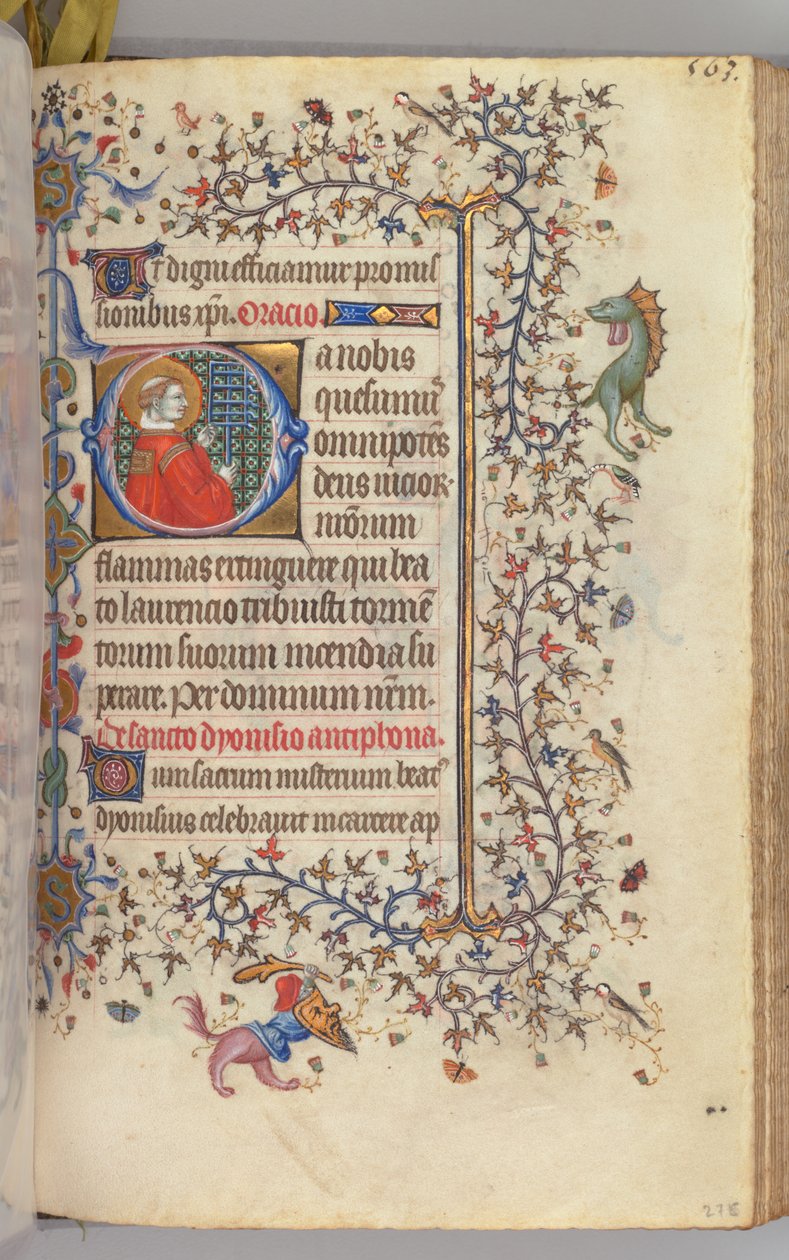 563.
Ut digni efficiamur promis
sionibus xp̄i. Oracio.
Da nobis
quesumus̄
omnipotēs
deus uicior
nr̄orum
flammas extinguere qui bea
to laurencio tribuisti tormē
torum suorum incendia su
perare. Per dominum nr̄m.
De sancto dyonisio antiphona.
Dum sacrum misterium beat9
dyonisius celebrauit in carcere ap
S
S